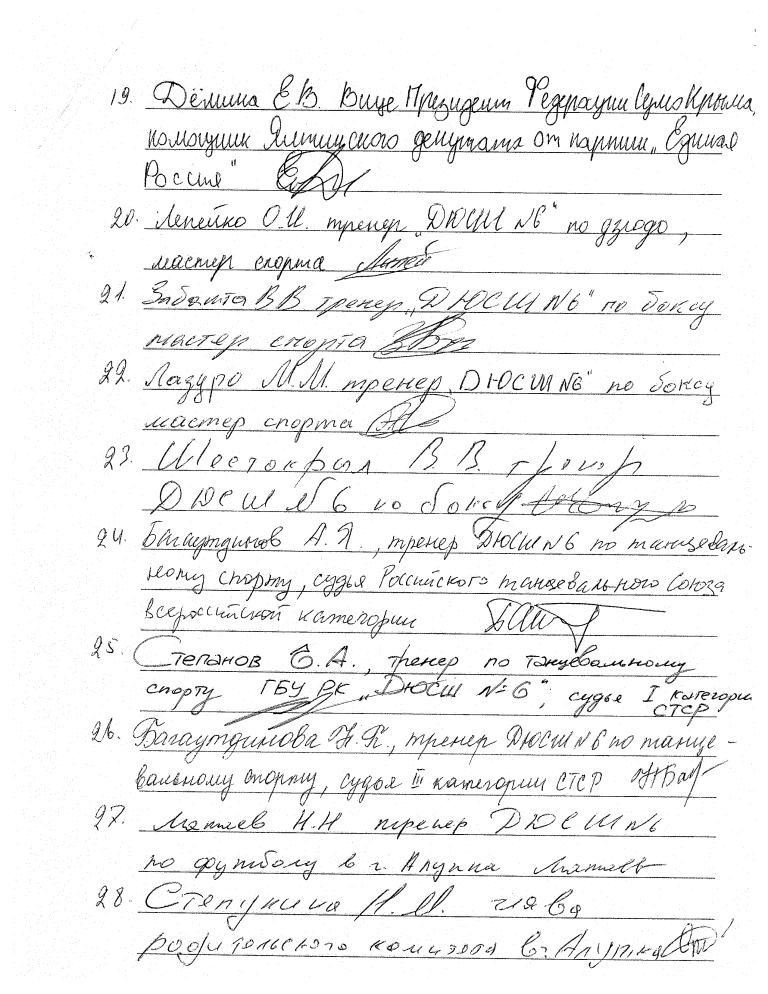 19. Дёмина Е В. Вице Президент Федерации Сумо Крыма,
помощник Ялтинского депутата от партии „Единая
Россия"
20. Лепейко О.И. тренер „ДЮСШ №6" по дзюдо,
мастер спорта
21. Забашта В В тренер „ДЮСШ №6" по боксу
мастер спорта
22. Лазуро М.М. тренер „ДЮСШ №6" по боксу
мастер спорта
23. Шестокрыл В. В. тренер
ДЮСШ №6 по боксу
24. Багаутдинов А. Я., тренер ДЮСШ №6 по танцеваль-
ному спорту, судья Российского танцевального Союза
всероссийской категории
25. Степанов Е.А., тренер по танцевальному
спорту ГБУ РК „ДЮСШ №6", судья I категории
СТСР
26. Багаутдинова Н.К., тренер ДЮСШ №6 по танце-
вальному спорту, судья III категории СТСР
27. Мятлев Н.Н тренер ДЮСШ №6
по футболу в г. Алупка
28. Степунина Н.И. глава
родительского комитета в г. Алупка